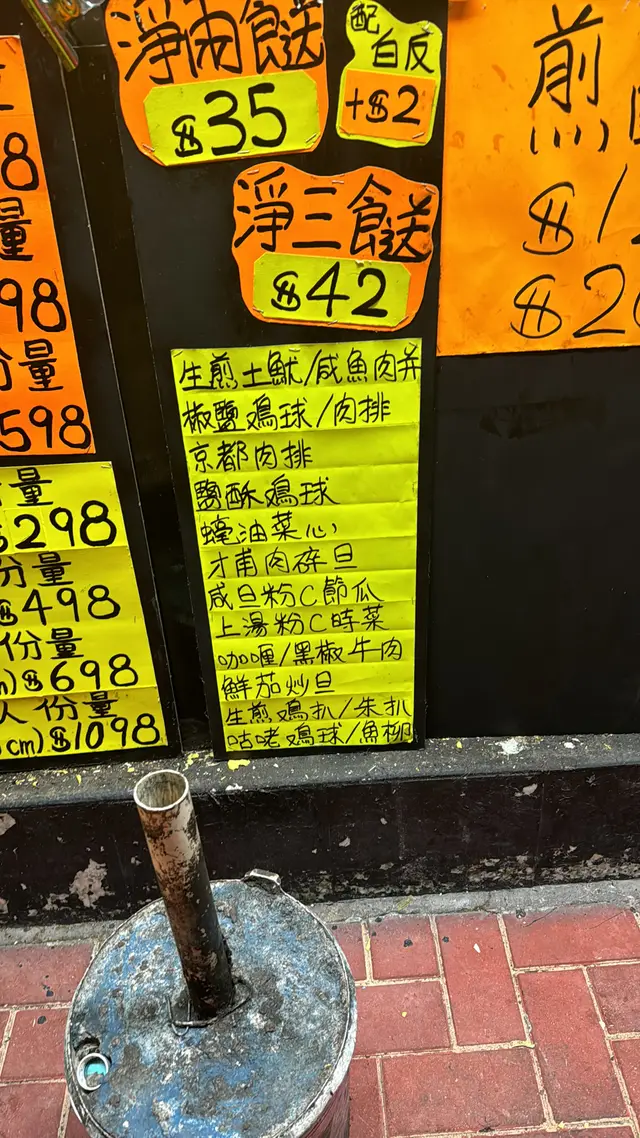 8
量
98
份量
598
量
$298
分量
$498
份量
m)$698
人份量
cm)$1098
淨兩餸
$35
配
白反
+$2
淨三餸
$42
生煎土魷/咸魚肉并
椒鹽鳮球/肉排
京都肉排
鹽酥鳮球
蠔油菜心
才甫肉碎旦
咸旦粉C節瓜
上湯粉C時菜
咖喱/黑椒牛肉
鮮茄炒旦
生煎鳮扒/朱扒
咕咾鳮球/魚柳
煎
$1
$20